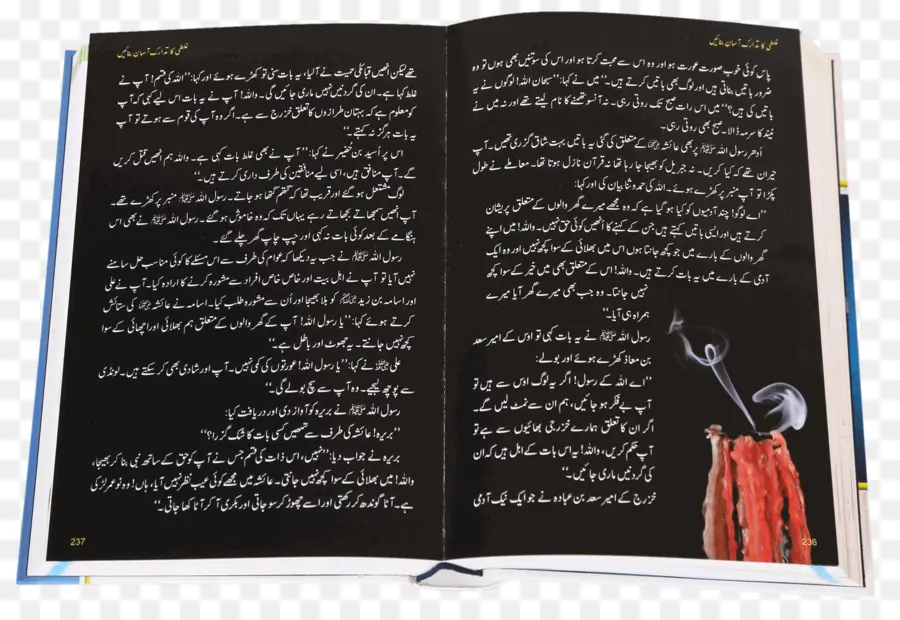 غلطی کا تدارک آسان بنائیں
پاس کوئی خوب صورت عورت ہو اور وہ اس سے محبت کرتا ہو اور اس کی سوتنیں بھی ہوں تو وہ
ضرور باتیں بناتی ہیں اور لوگ بھی باتیں کرتے ہیں۔“ میں نے کہا: ”سبحان اللہ! لوگوں نے یہ
باتیں کی ہیں؟“ میں اس رات صبح تک روتی رہی۔ نہ آنسو تھمنے کا نام لیتے تھے اور نہ میں نے
نیند کا سرمہ ڈالا۔ صبح بھی روتی رہی۔
اُدھر رسول اللہ ﷺ پر بھی عائشہ رضی اللہ عنہا کے متعلق کی گئی یہ باتیں بہت شاق گزری تھیں۔ آپ
حیران تھے کہ کیا کریں۔ نہ جبریل کو بھیجا جا رہا تھا نہ قرآن نازل ہوتا تھا۔ معاملے نے طول
پکڑا تو آپ منبر پر کھڑے ہوئے۔ اللہ کی حمد و ثنا بیان کی اور کہا:
”اے لوگو! چند آدمیوں کو کیا ہو گیا ہے کہ وہ مجھے میرے گھر والوں کے متعلق پریشان
کرتے ہیں اور ایسی باتیں کہتے ہیں جن کے کہنے کا اُنھیں کوئی حق نہیں۔ واللہ! میں اپنے
گھر والوں کے بارے میں جو کچھ جانتا ہوں اس میں بھلائی کے سوا کچھ نہیں اور وہ ایک
آدمی کے بارے میں یہ بات کرتے ہیں۔ واللہ! اس کے متعلق بھی میں خیر کے سوا کچھ
نہیں جانتا۔ وہ جب بھی میرے گھر آیا میرے
ہمراہ ہی آیا۔“
رسول اللہ ﷺ نے یہ بات کہی تو اوس کے امیر سعد
بن معاذ کھڑے ہوئے اور بولے:
”اے اللہ کے رسول! اگر یہ لوگ اوس سے ہیں تو
آپ بے فکر ہو جائیں، ہم ان سے نمٹ لیں گے۔
اگر ان کا تعلق ہمارے خزرجی بھائیوں سے ہے تو
آپ حکم کریں، واللہ! یہ اس بات کے اہل ہیں کہ ان
کی گردنیں ماری جائیں۔“
خزرج کے امیر سعد بن عبادہ نے جو ایک نیک آدمی
236
غلطی کا تدارک آسان بنائیں
تھے لیکن انھیں قبائلی حمیت نے آ لیا، یہ بات سنی تو کھڑے ہوئے اور کہا: ”اللہ کی قسم! آپ نے
غلط کہا ہے۔ ان کی گردنیں نہیں ماری جائیں گی۔ واللہ! آپ نے یہ بات اس لیے کہی کہ آپ
کو معلوم ہے کہ بہتان طرازوں کا تعلق خزرج سے ہے۔ اگر وہ آپ کی قوم سے ہوتے تو آپ
یہ بات ہرگز نہ کہتے۔“
اس پر اُسید بن حُضیر نے کہا: ”آپ نے بھی غلط بات کہی ہے۔ واللہ ہم انھیں قتل کریں
گے۔ آپ منافق ہیں، اسی لیے منافقین کی طرف داری کرتے ہیں۔“
لوگ مشتعل ہو گئے اور قریب تھا کہ گتھم گتھا ہو جاتے۔ رسول اللہ ﷺ منبر پر کھڑے تھے۔
آپ اُنھیں سمجھاتے بجھاتے رہے یہاں تک کہ وہ خاموش ہو گئے۔ رسول اللہ ﷺ نے بھی اس
ہنگامے کے بعد کوئی بات نہ کہی اور چپ چاپ گھر چلے گئے۔
رسول اللہ ﷺ نے جب یہ دیکھا کہ عوام کی طرف سے اس مسئلے کا کوئی مناسب حل سامنے
نہیں آیا تو آپ نے اہل بیت اور خاص خاص افراد سے مشورہ کرنے کا ارادہ کیا۔ آپ نے علی
اور اسامہ بن زید رضی اللہ عنہم کو بلا بھیجا اور اُن سے مشورہ طلب کیا۔ اسامہ نے عائشہ رضی اللہ عنہا کی ستائش
کرتے ہوئے کہا: ”یا رسول اللہ! آپ کے گھر والوں کے متعلق ہم بھلائی اور اچھائی کے سوا
کچھ نہیں جانتے۔ یہ جھوٹ اور باطل ہے۔“
علی رضی اللہ عنہ نے کہا: ”یا رسول اللہ! عورتوں کی کمی نہیں۔ آپ اور شادی بھی کر سکتے ہیں۔ لونڈی
سے پوچھ لیجیے۔ وہ آپ سے سچ بولے گی۔“
رسول اللہ ﷺ نے بریرہ کو آواز دی اور دریافت کیا:
”بریرہ! عائشہ کی طرف سے تمھیں کسی بات کا شک گزرا؟“
بریرہ نے جواب دیا: ”نہیں، اس ذات کی قسم جس نے آپ کو حق کے ساتھ نبی بنا کر بھیجا،
واللہ! میں بھلائی کے سوا کچھ نہیں جانتی۔ عائشہ میں مجھے کوئی عیب نظر نہیں آیا، ہاں! وہ نو عمر لڑکی
ہے۔ آٹا گوندھ کر رکھتی اور اسے چھوڑ کر سو جاتی اور بکری آ کر آٹا کھا جاتی۔“
237